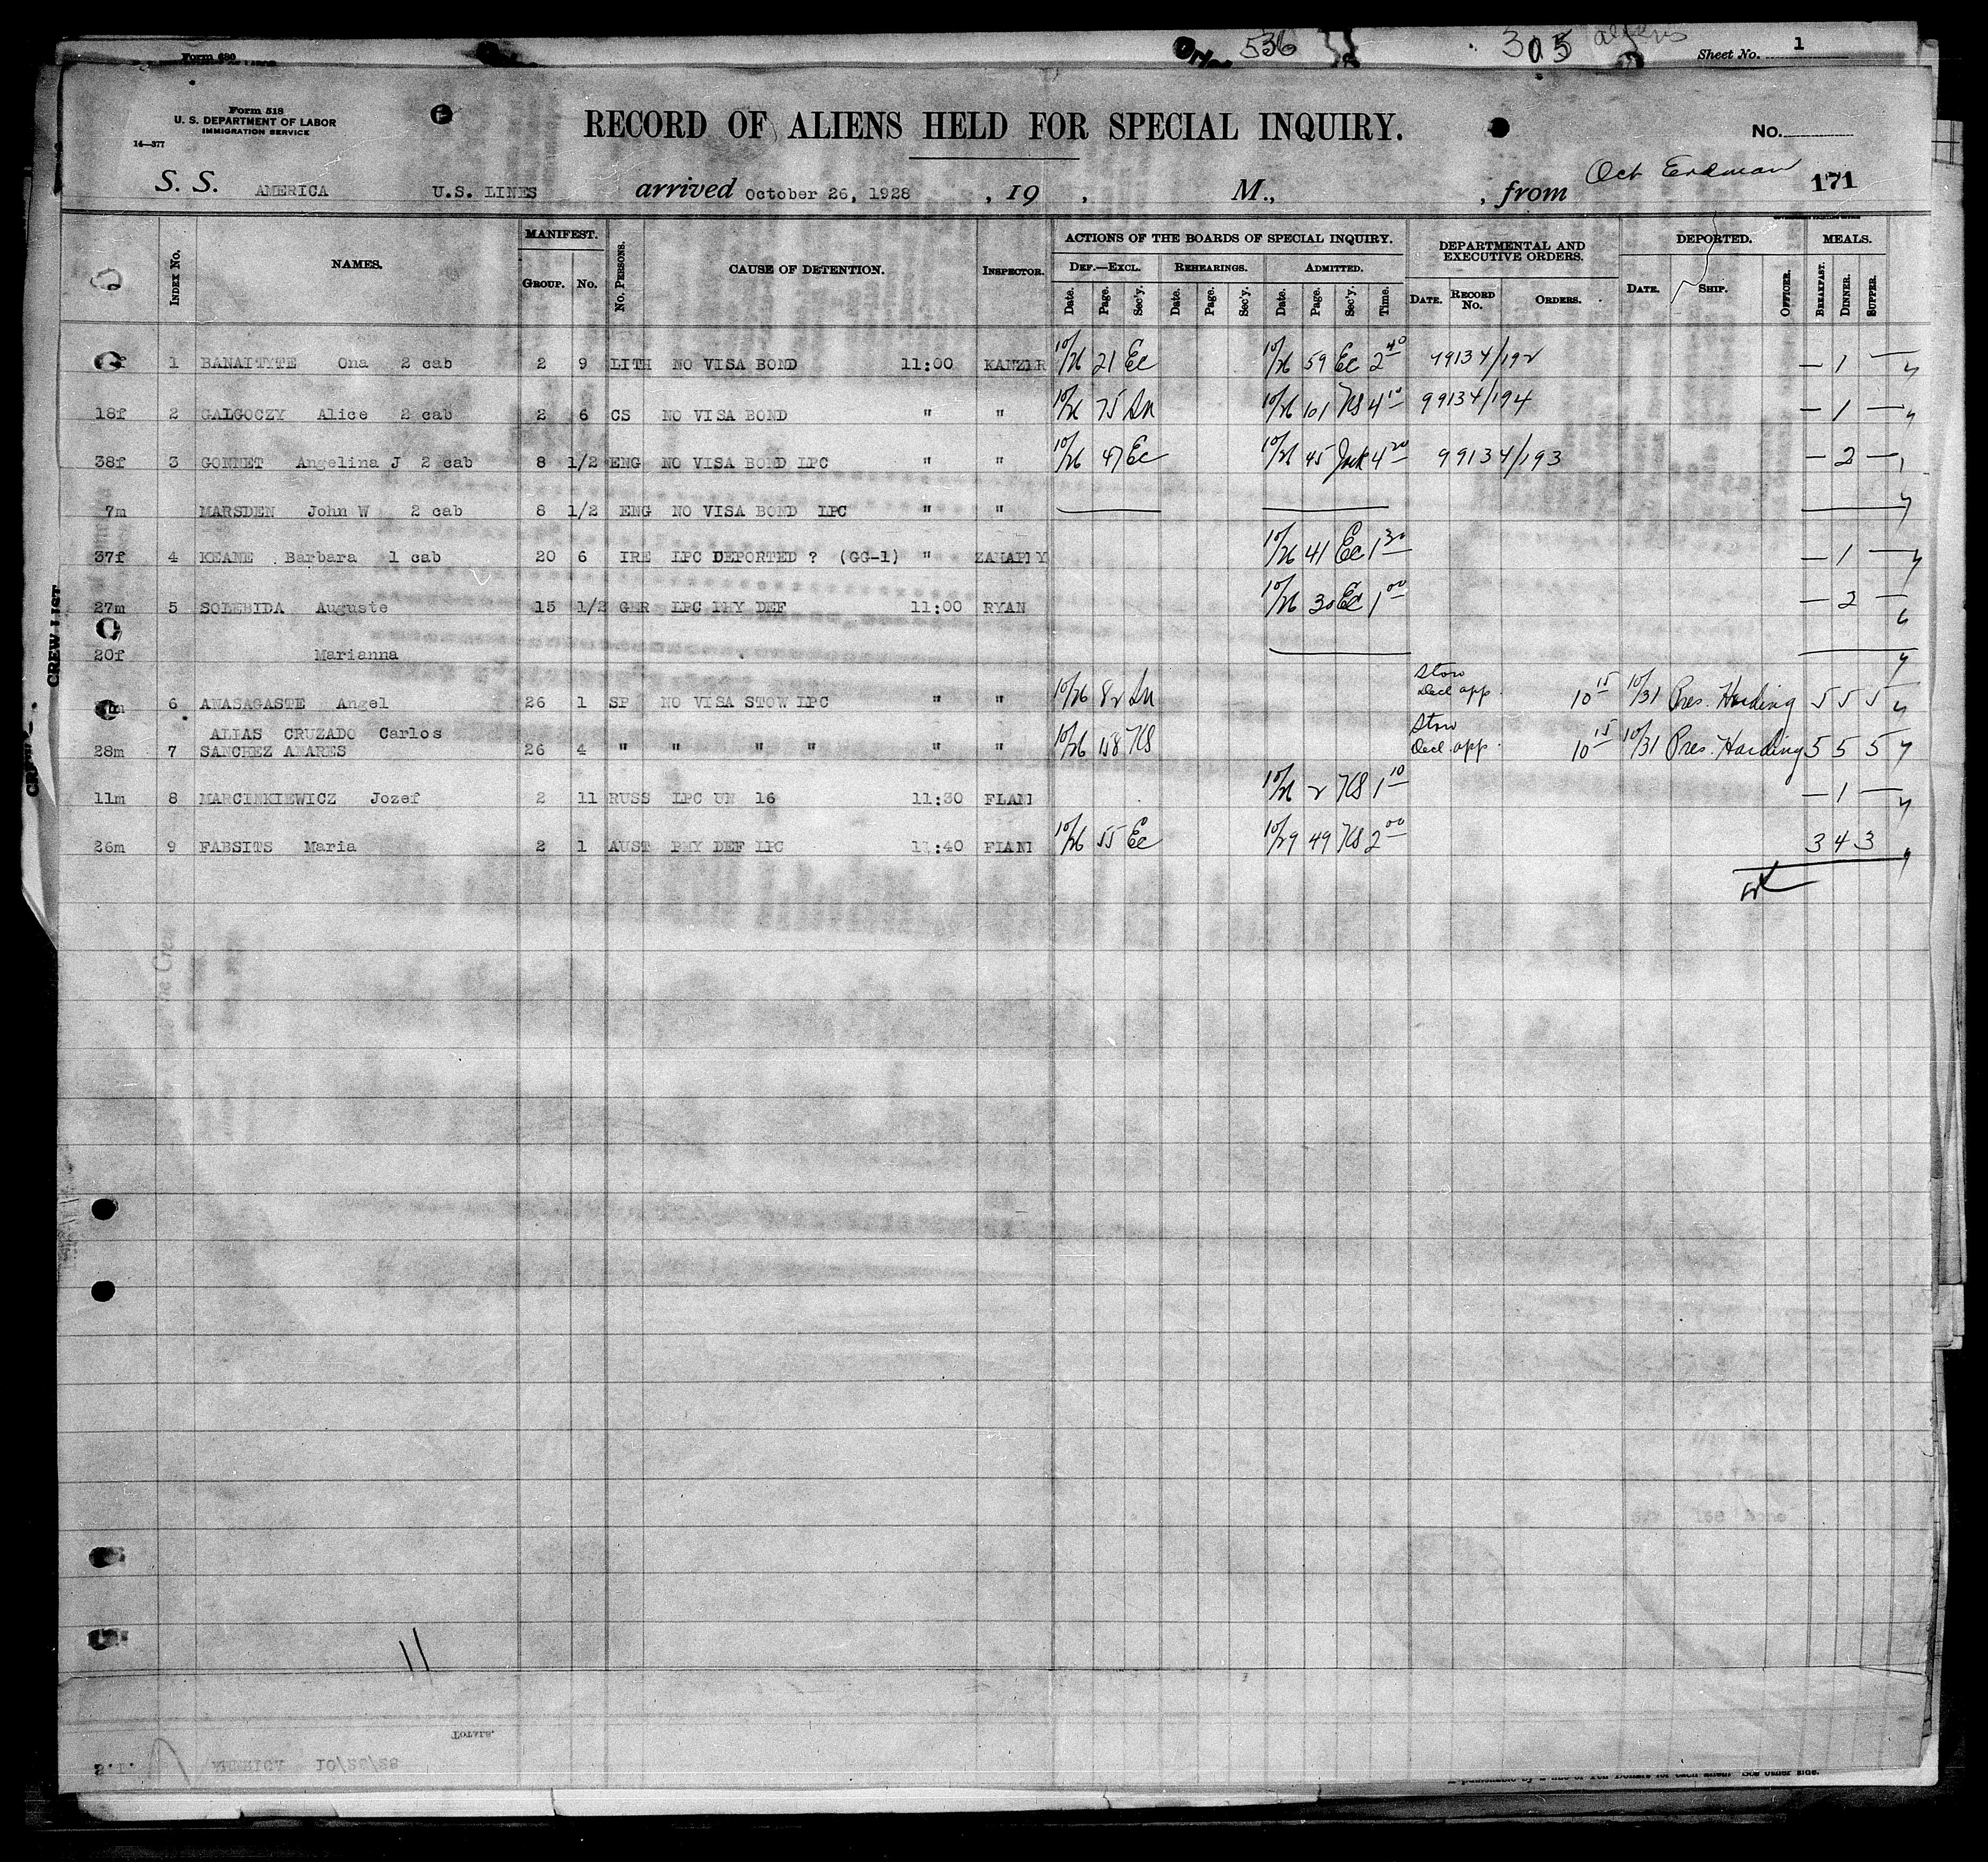 Form 680
536
305 aliens
Sheet No. 1
Form 518
U. S. DEPARTMENT OF LABOR
IMMIGRATION SERVICE
14—377
RECORD OF ALIENS HELD FOR SPECIAL INQUIRY.
No.
S. S. AMERICA U.S. LINES arrived October 26, 1928, 19 , M., , from Oct Erdman 171
INDEX No. NAMES. MANIFEST. GROUP. No. No. PERSONS. CAUSE OF DETENTION. INSPECTOR. ACTIONS OF THE BOARDS OF SPECIAL INQUIRY. DEPARTMENTAL AND EXECUTIVE ORDERS. DEPORTED. MEALS.
DEF.—EXCL. REHEARINGS. ADMITTED.
Date. Page. Sec'y. Date. Page. Sec'y. Date. Page. Sec'y. Time. DATE. RECORD No. ORDERS. DATE. SHIP. OFFICER. BREAKFAST. DINNER. SUPPER.
f 1 BANAITYTE Ona 2 cab 2 9 LITH NO VISA BOND 11:00 KANZER 10/26 21 Ec 10/26 59 Ec 2 40 99134/192 — 1 —
18f 2 GALGOCZY Alice 2 cab 2 6 CS NO VISA BOND " " 10/26 75 Sn 10/26 101 KS 4 10 99134/194 — 1 —
38f 3 GONNET Angelina J 2 cab 8 1/2 ENG NO VISA BOND LPC " " 10/26 47 Ec 10/26 45 Jack 4 20 99134/193 — 2 —
7m MARSDEN John W 2 cab 8 1/2 ENG NO VISA BOND LPC " "
37f 4 KEANE Barbara 1 cab 20 6 IRE LPC DEPORTED ? (GG-1) " ZAHARRY 10/26 41 Ec 1 30 — 1 —
27m 5 SOLEBIDA Auguste 15 1/2 GER LPC PHY DEF 11:00 RYAN 10/26 30 Ec 1 00 — 2 —
20f Marianna
m 6 ANASAGASTE Angel 26 1 SP NO VISA STOW LPC " " 10/26 82 Sn Stow Decl app. 10 15 10/31 Pres. Harding 5 5 5
ALIAS CRUZADO Carlos
28m 7 SANCHEZ ANARES 26 4 " " " " " " 10/26 158 KS Stow Decl. app. 10 15 10/31 Pres. Harding 5 5 5
11m 8 MARCINKIEWICZ Jozef 2 11 RUSS LPC UN 16 11:30 FLANI 10/26 2 KS 1 10 — 1 —
26m 9 FABSITS Maria 2 1 AUST PHY DEF LPC 11:40 FIANI 10/26 55 Ec 10/29 49 KS 2 00 3 4 3
CREW LIST
11
TOTALS.
S.I. AMERICA 10/26/28
punishable by a fine of Ten Dollars for each alien. See other side.